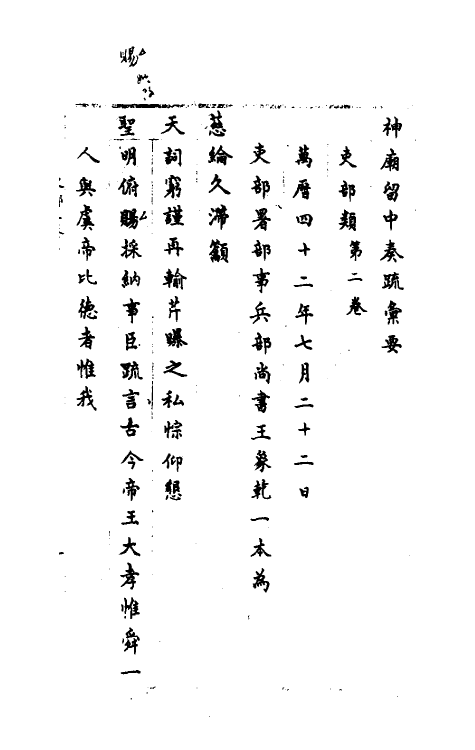 神廟留中奏疏彙要
吏部類第二卷
萬曆四十二年七月二十二日
吏部署部事兵部尚書王象乾一本為
慈綸久滯籲
天詞窮謹再輸芹曝之私悰仰懇
聖明俯賜採納事臣疏言古今帝王大孝惟舜一
人與虞帝比德者惟我
賜